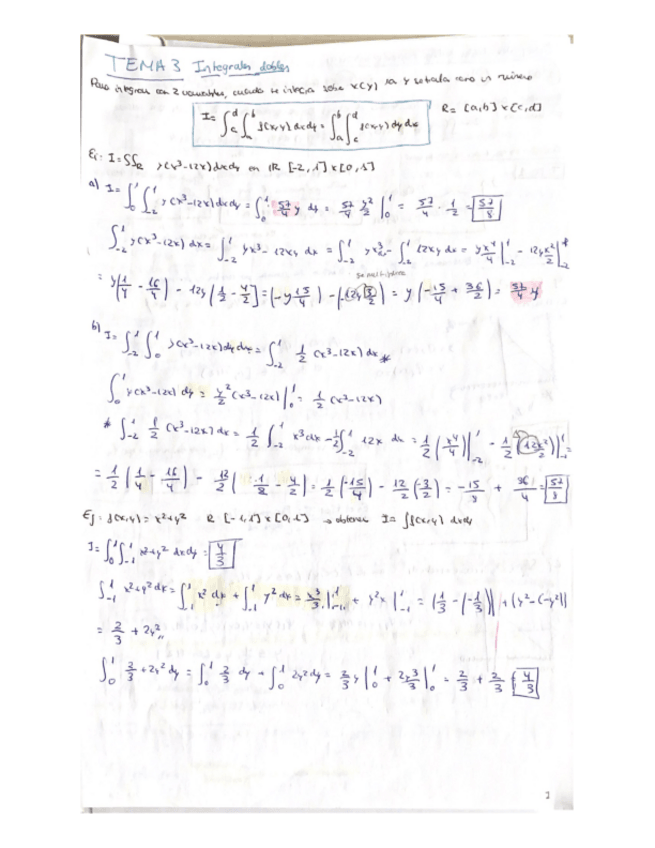 TEMA 3 Integrales dobles
Para integrar con 2 variables, cuando se integra sobre x(y) la y se trata como un número
I = ∫_c^d ∫_a^b f(x,y) dx dy = ∫_a^b ∫_c^d f(x,y) dy dx R = [a,b] x [c,d]
Ej: I = ∫∫_R y(x³-12x) dx dy en R [-2,1] x [0,1]
a) I = ∫_0^1 ∫_-2^1 y(x³-12x) dx dy = ∫_0^1 57/4 y dy = 57/4 y²/2 |_0^1 = 57/4 · 1/2 = 57/8
∫_-2^1 y(x³-12x) dx = ∫_-2^1 yx³ - 12xy dx = ∫_-2^1 yx³ - ∫_-2^1 12xy dx = yx⁴/4 |_-2^1 - 12y x²/2 |_-2^1
= y(1/4 - 16/4) - 12y(1/2 - 4/2) = (-y 15/4) - (-12y 3/2) = y(-15/4 + 36/2) = 57/4 y
b) I = ∫_-2^1 ∫_0^1 y(x³-12x) dy dx = ∫_-2^1 1/2 (x³-12x) dx *
∫_0^1 y(x³-12x) dy = y²/2 (x³-12x) |_0^1 = 1/2 (x³-12x)
* ∫_-2^1 1/2 (x³-12x) dx = 1/2 ∫_-2^1 x³ dx - 1/2 ∫_-2^1 12x dx = 1/2 (x⁴/4) |_-2^1 - 1/2 (12x²/2) |_-2^1 =
= 1/2 (1/4 - 16/4) - 12/2 (1/2 - 4/2) = 1/2 (-15/4) - 12/2 (-3/2) = -15/8 + 36/4 = 57/8
Ej: f(x,y) = x²+y² R [-1,1] x [0,1] → obtener I = ∫f(x,y) dx dy
I = ∫_0^1 ∫_-1^1 x²+y² dx dy = 4/3
∫_-1^1 x²+y² dx = ∫_-1^1 x² dx + ∫_-1^1 y² dx = x³/3 |_-1^1 + y²x |_-1^1 = (1/3 - (-1/3)) + (y²-(-y²))
= 2/3 + 2y²
∫_0^1 2/3 + 2y² dy = ∫_0^1 2/3 dy + ∫_0^1 2y² dy = 2/3 y |_0^1 + 2y³/3 |_0^1 = 2/3 + 2/3 = 4/3